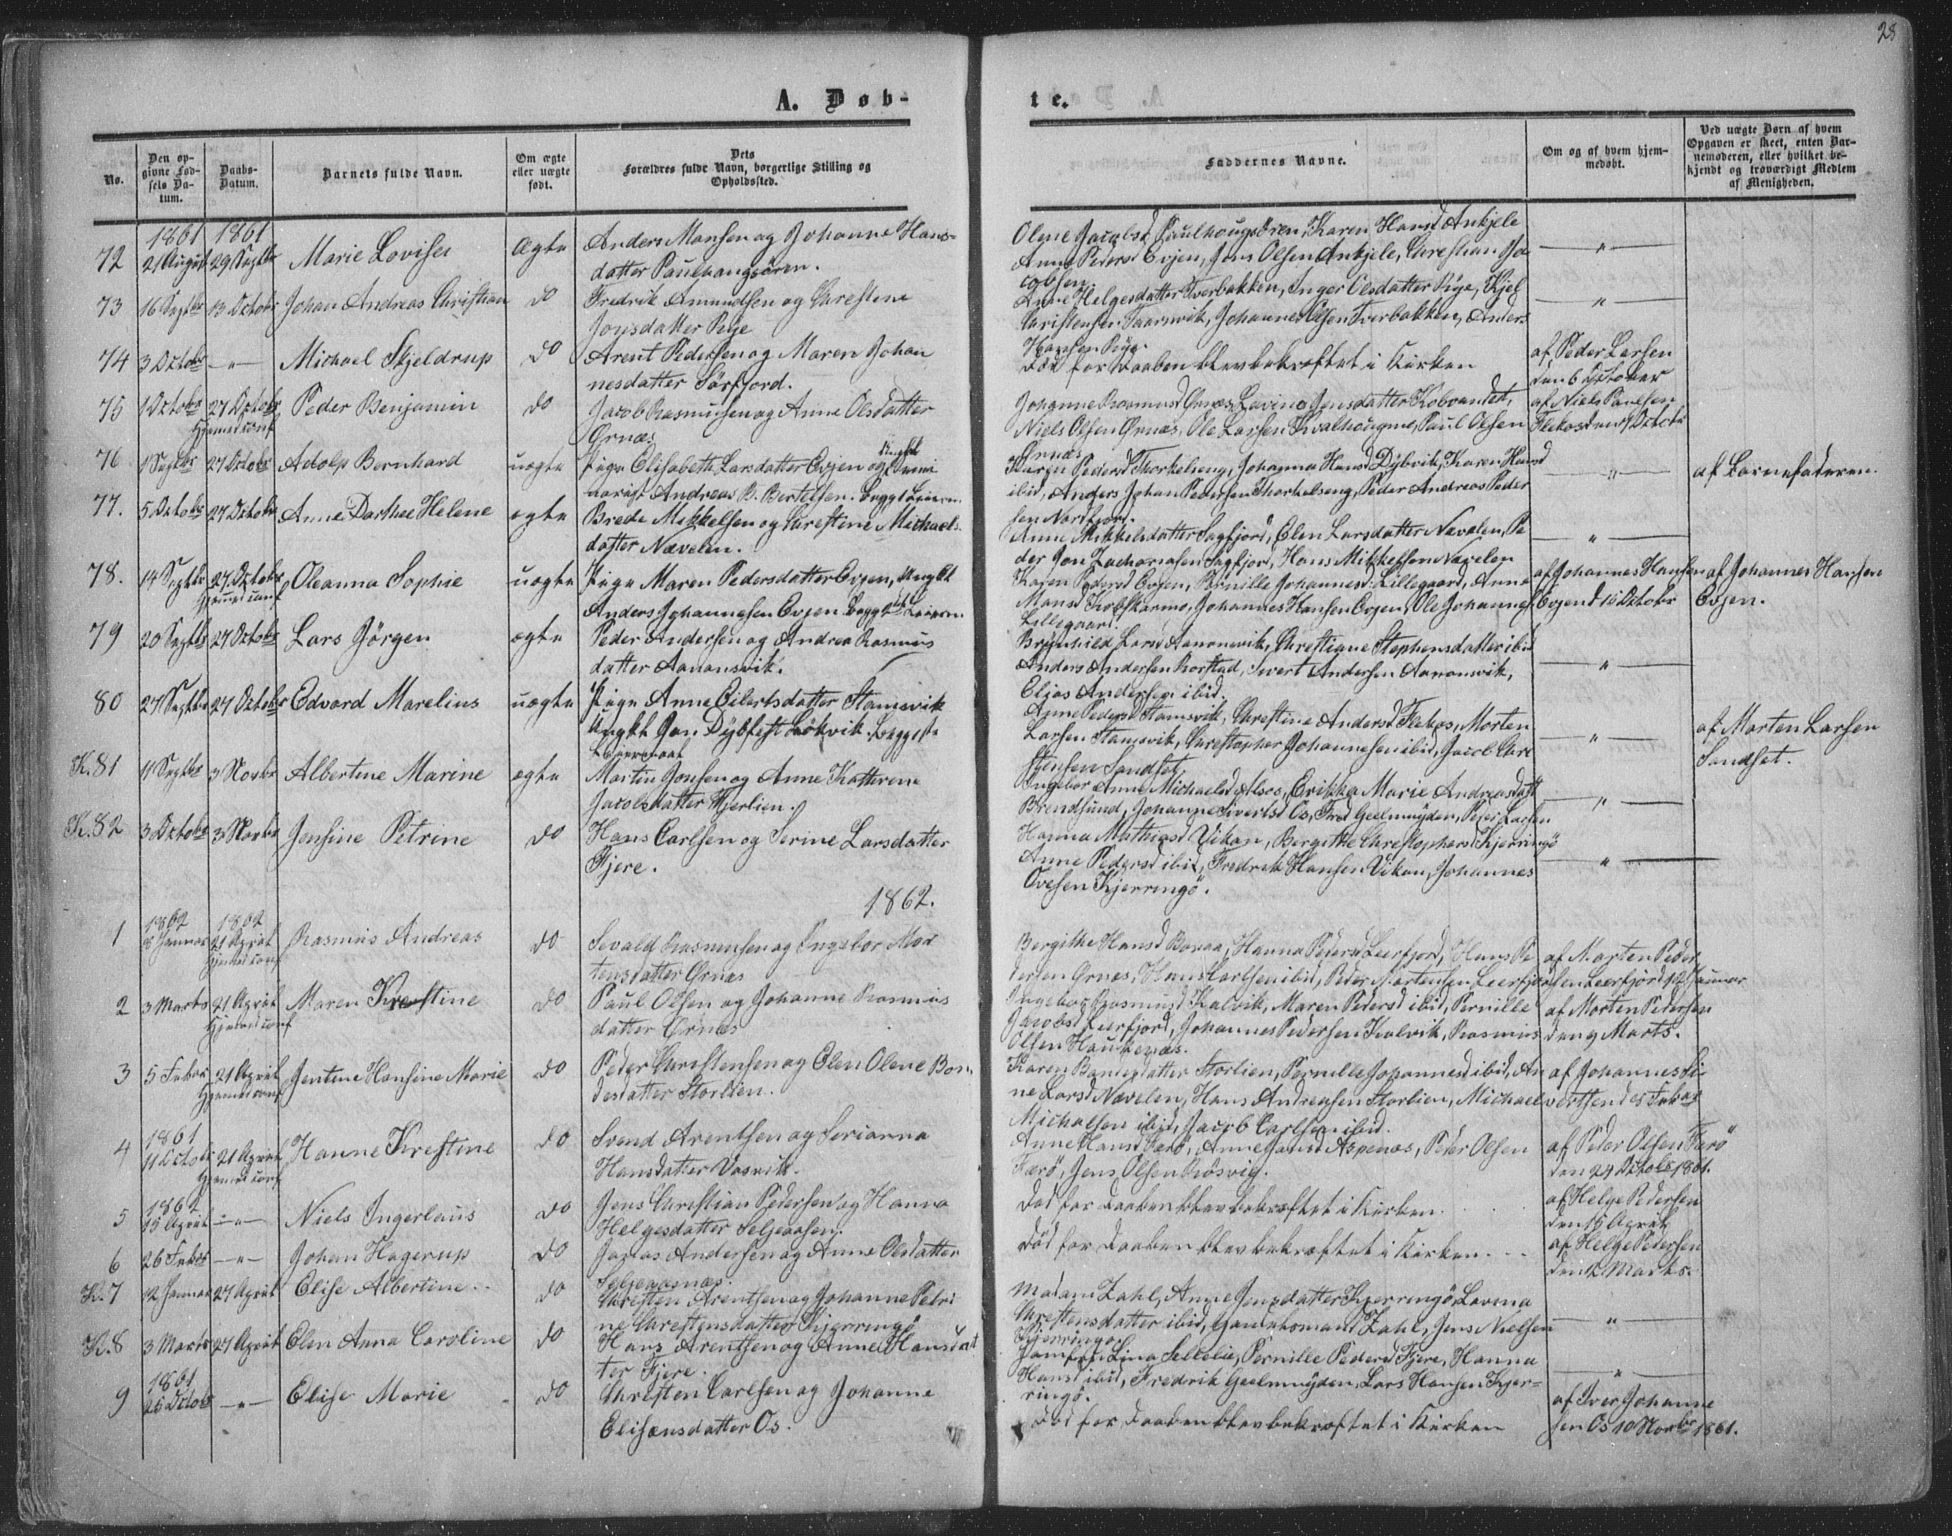 28
A. Døb-
te.
No.
Den op-
givne Fød-
sels Da-
tum.
Daabs-
Datum.
Barnets fulde Navn.
Om ægte
eller uægte
født.
Dets
Forældres fulde Navn, borgerlige Stilling og
Opholdssted.
Faddernes Navne.
Om og af hvem hjem-
medøbt.
Ved uægte Børn af hvem
Opgaven er skeet, enten Bar-
nemoderen, eller hvilket be-
kjendt og troværdigt Medlem
af Menigheden.
1861 1861
72 21 August 29 Septbr Marie Lovise Ægte Anders Monsen og Johanne Hans-
datter Paulhaugsören.
Anne Peders Evjen, Jens Olsen Ankjele, Christian Ja
cobsen
73 16 Septbr 13 Octobr Johan Andreas Christian do Fredrik Amundsen og Chrestene
Jonsdatter Røge
Anne Helgesdatter Tverbakken, Inger Olsdatter Røge, Kjel
Christensen Taarnvik, Johannes Olsen Tverbakken, Anders
Hansen Røge.
74 3 Octobr -"- Michael Skjeldrup do Arent Pedersen og Maren Johan
nesdatter Sörfjord.
Död for Daaben blev bekræftet i Kirken
af Peder Larsen
den 6 October
75 1 Octobr 27 Octobr Peder Benjamin do Jacob Rasmussen og Anne Olsdatter
Hjemed conf
Ørnæs
Niels Olsen Ørnæs, Ole Larsen Hvalhougmo, Paul Olsen
Ørnæs
af Niels Paulsen
76 1 Septbr 27 Octobr Adolp Bernhard uægte Pige Elisabeth Larsdatter Evjen og
Andreas B. Bertelsen.
Karen Pedersd Thorkelseng, Johanna Hansd Dybvik, Karen Hansd
ibid, Anders Johan Pedersen Thorkelseng, Peder Andreas Peder
sen Nordfjord.
af Barnefaderen.
77. 5 Octobr 27 Octobr Anne Dorthee Helene ægte Brede Mikkelsen og Chrestine Michaels
datter Nævelen.
Anne Mikkelsdatter Sagfjord, Elen Larsdatter Nævelen, Pe
der Jon Zachariasen Sagfjord, Hans Mikkelsen Nævelen
78. 14 Septbr 27. Octobr Oleanna Sophie uægte Pige Maren Pedersdatter Evjen, Ungkl
Hjemed conf
Anders Johannesen Evjen
Karen Pedersd Evjen, Pernille Johannesd Lillegaard, Anne
Johannes Hansen Evjen, Ole Johannes
Lillegaard.
af Johannes Hansen
Evjen d 15 Octobr
af Johannes Hansen
Evjen.
79 20 Septbr 27 Octobr Lars Jörgen ægte Peder Andersen og Andrea Rasmus
datter Aanonsvik.
Brynhild Larsd Aanonsvik, Chrestiane Stephensdatter ibid
Anders Andersen Rorstad, Sivert Andersen Aanonsvik,
Elias Andersen ibid.
80 27 Septbr 27 Octobr Edvard Marelius uægte Pige Anne Eilertsdatter Stamsvik
Ungkl Jon Dybfest Løkvik
Anne Pedersd Stamsvik, Chrestine Andersd Fløkos, Morten
Larsen Stamsvik, Chrestopher Johannesen ibid, Jacob Chre
stensen Sandset.
af Morten Larsen
Sandset.
K. 81 11 Septbr 3 Novbr Albertine Marine ægte Martin Jonsen og Anne Kathrine
Jacobsdatter Fjerlien.
Ingebor Anna Michaelsd Alsos, Erikka Marie Andreasdatt
Brendsund, Johanne Sivertsd Os, Fred Geelmuyden, Peter Larsen
K. 82 3 Octobr 3 Novbr Jensine Petrine do Hans Carlsen og Serine Larsdatter
Fjere.
Hanna Mathiasd Vikan, Bergithe Chrestophersd Kjerringö
Anne Pedersd ibid, Fredrik Hansen Vikan, Johannes
Ovesen Kjerringö.
1862.
1862 1862
1 8 Januar 21 April Rasmus Andreas do Sevald Rasmussen og Ingebor Mor
Hjemed conf
tensdatter Ørnæs
dersen Ørnes, Hans Carlsen ibid, Peder Mortensen Leerfjord
af Morten Peder
sen Leerfjord 12 Januar
2 3 Marts 21 April Maren Krestine do Paul Olsen og Johanne Rasmus
Hjemed conf
datter Ørnæs
Ingebor Rasmusd Kalvik, Maren Pedersd ibid, Pernille
Jacobsd Leerfjord, Johannes Pedersen Kalvik, Rasmus
Olsen
af Morten Pedersen
den 9 Marts.
3 5 Febr 21 April Jentine Hansine Marie do Peder Chrestensen og Elen Olene Bon
Hjemed conf
desdatter Storlien.
Karen Bondesdatter Storlien, Pernille Johannesd ibid, An
ne Larsd Nævelen, Hans Andreasen Storlien, Michael
Michalsen ibid, Jacob Carlsen ibid.
af Johannes Si
vertsen
1861
4 11 Octobr 21 April Hanne Krestine do Svend Arentsen og Serianna
Hjemed conf
Hansdatter Vasvik.
Anne Hansd Farö, Anne Jonsd Aspenæs, Peder Olsen
Farö, Jens Olsen Rösvig.
af Peder Olsen Farö
den 24 Octobr 1861.
1862
5 15 April -"- Niels Ingerlaus do Jens Christian Pedersen og Hanna
Helgesdatter Seljeaasen.
Död for Daaben blev bekræftet i Kirken.
af Helge Pedersen
den 15 April
6 26 Febr -"- Johan Hagerup do Jonas Andersen og Anne Olsdatter
Död for Daaben blev bekræftet i Kirken.
af Helge Pedersen
den 12 Marts.
K. 7 12 Januar 27 April Elise Albertine do Chresten Arentsen og Johanne Petri
ne Chrestensdatter Kjerringö
Madam Zahl, Anne Jensdatter Kjerringö, Lovina
Chrestensdatter ibid, Handelsmand Zahl, Jens Nielsen
Kjerringö.
K. 8 3 Marts 27 April Elen Anna Caroline do Hans Arentsen og Anne Hansdat
ter Fjere.
Jomfru Lina Sellelie, Pernille Pedersd Fjere, Hanna
Hansd ibid, Fredrik Geelmuyden, Lars Hansen Kjer-
ringö.
1861
9 25 Octobr -"- Elise Marie do Chresten Carlsen og Johanne
Elisænsdatter Os.
Död for Daaben blev bekræftet i Kirken
af Iver Johanne
sen Os 10 Novbr 1861.